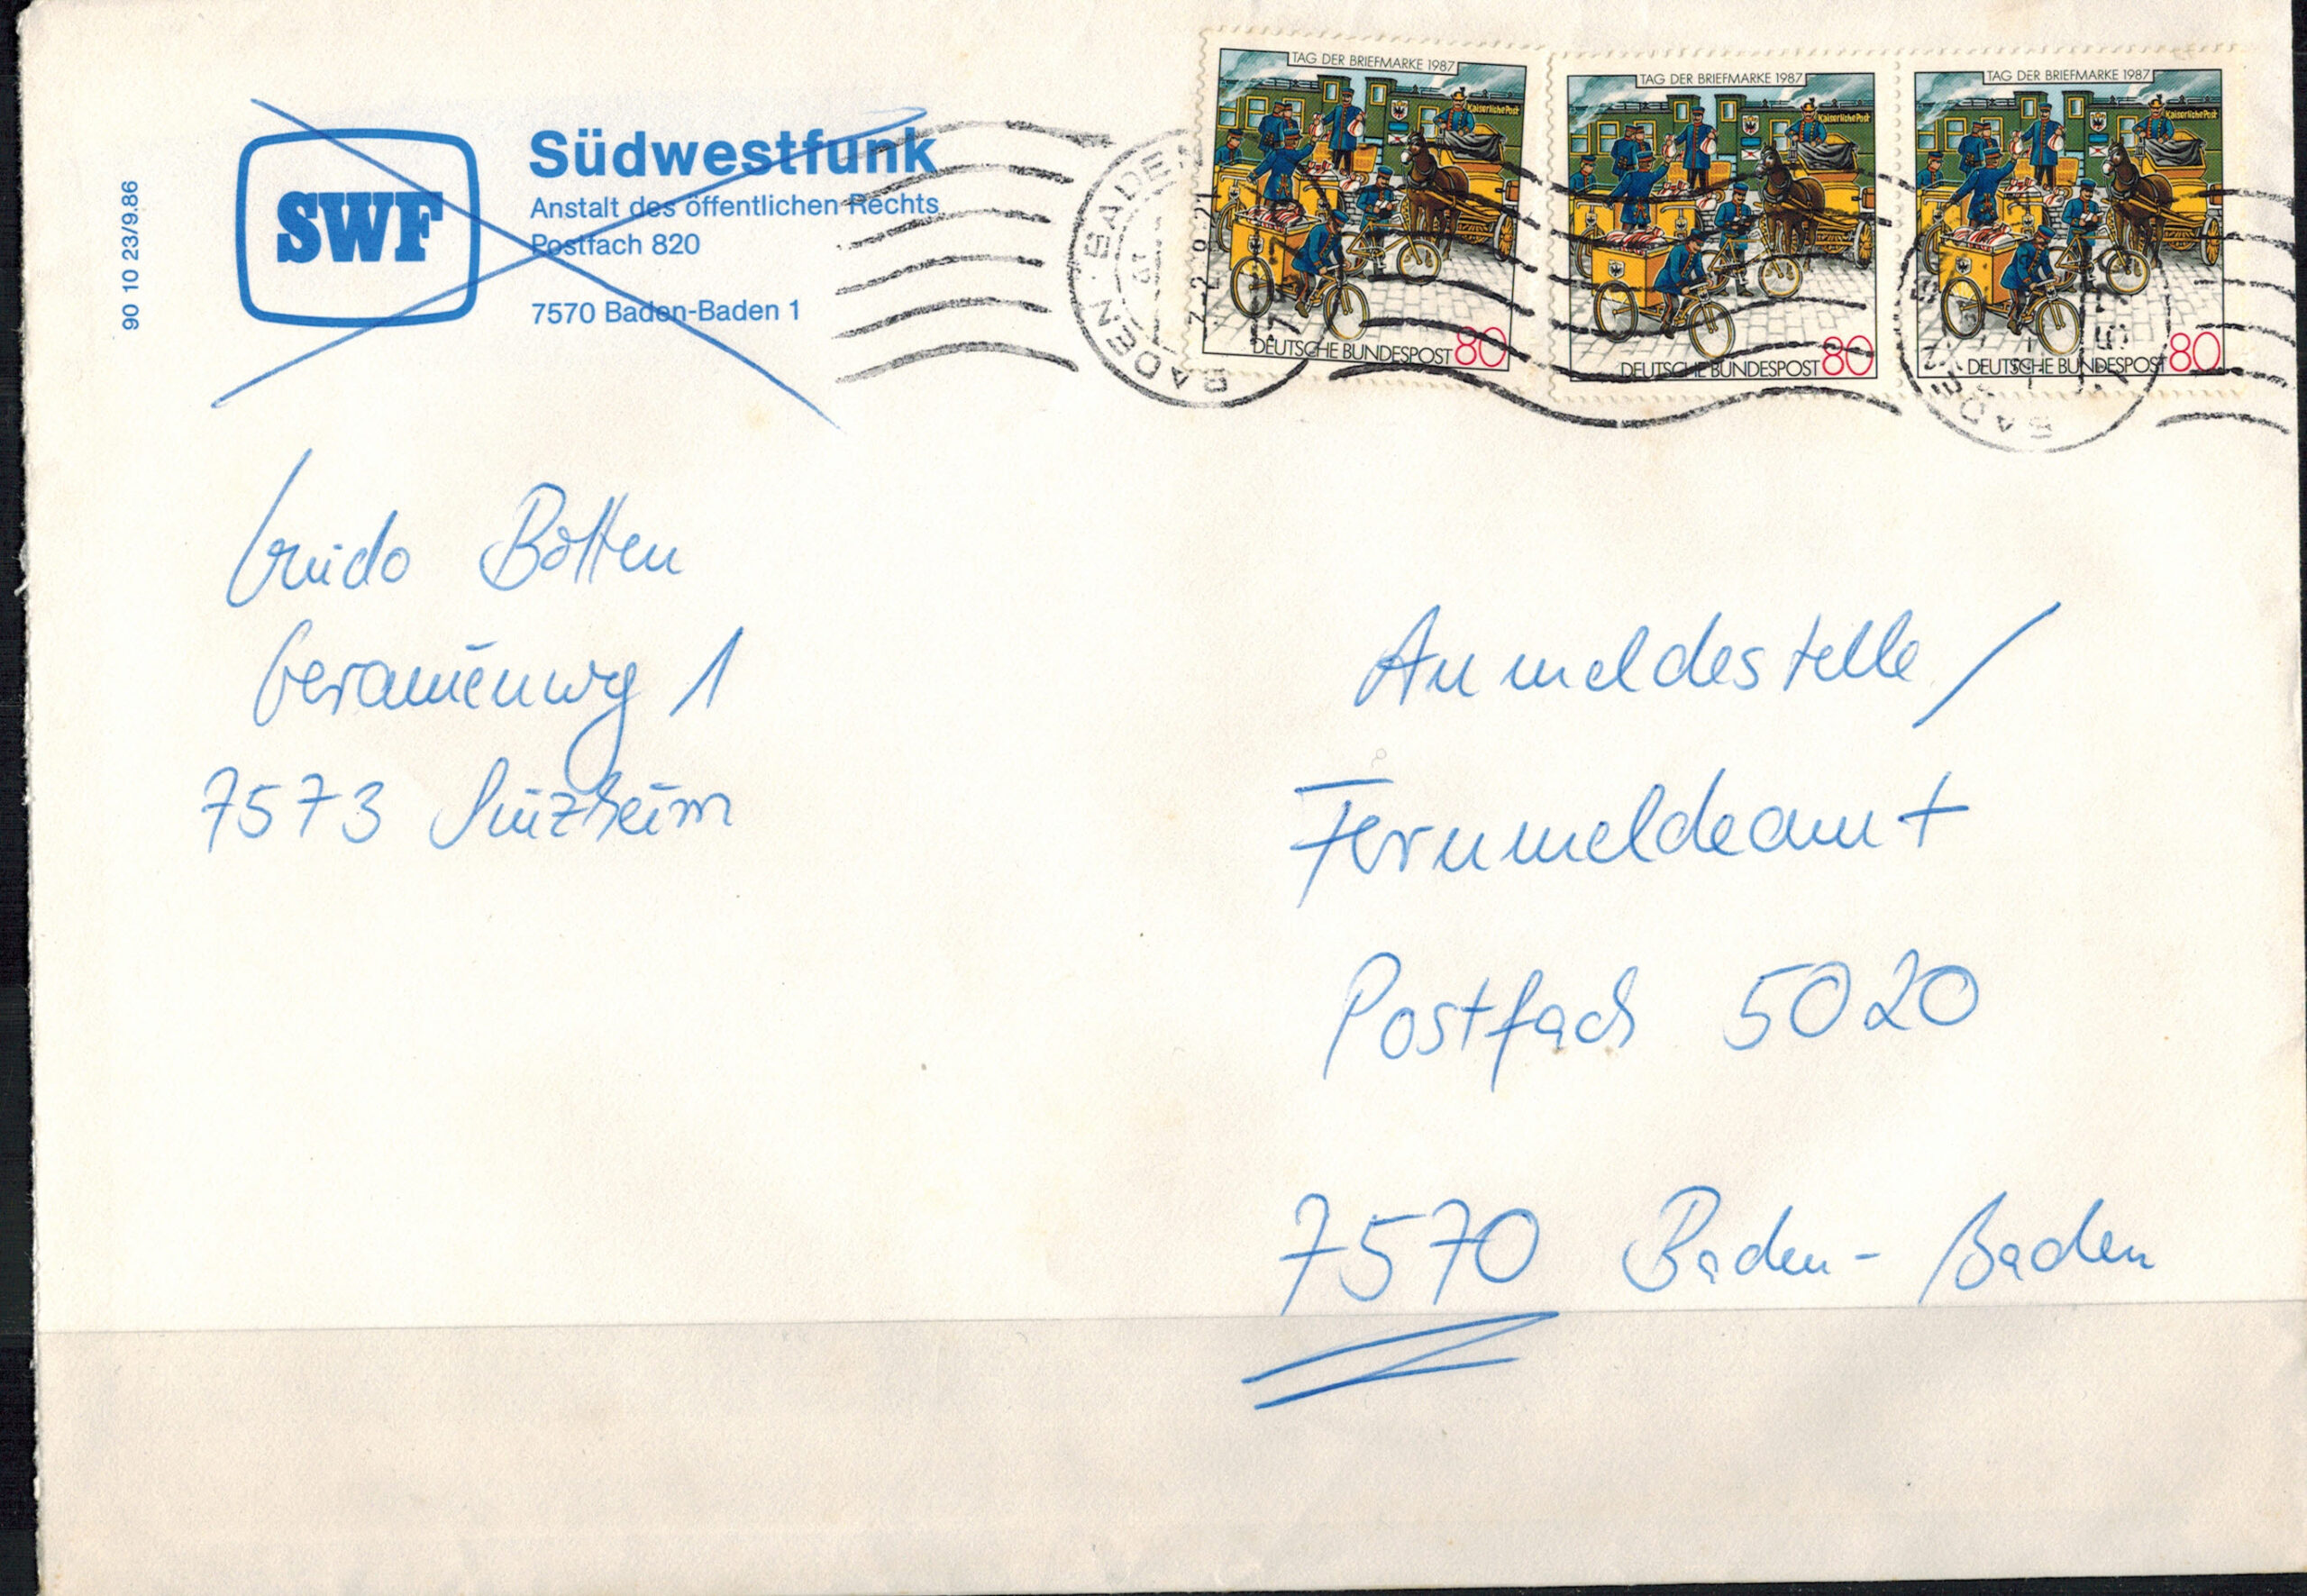 90 10 23/9.86
SWF
Südwestfunk
Anstalt des öffentlichen Rechts
Postfach 820
7570 Baden-Baden 1
TAG DER BRIEFMARKE 1987
Kaiserliche Post
DEUTSCHE BUNDESPOST 80
TAG DER BRIEFMARKE 1987
Kaiserliche Post
DEUTSCHE BUNDESPOST 80
TAG DER BRIEFMARKE 1987
Kaiserliche Post
DEUTSCHE BUNDESPOST 80
BADEN-BADEN
Guido Bötten
Geranienweg 1
7573 Sinzheim
Anmeldestelle/
Fernmeldeamt
Postfach 5020
7570 Baden-Baden